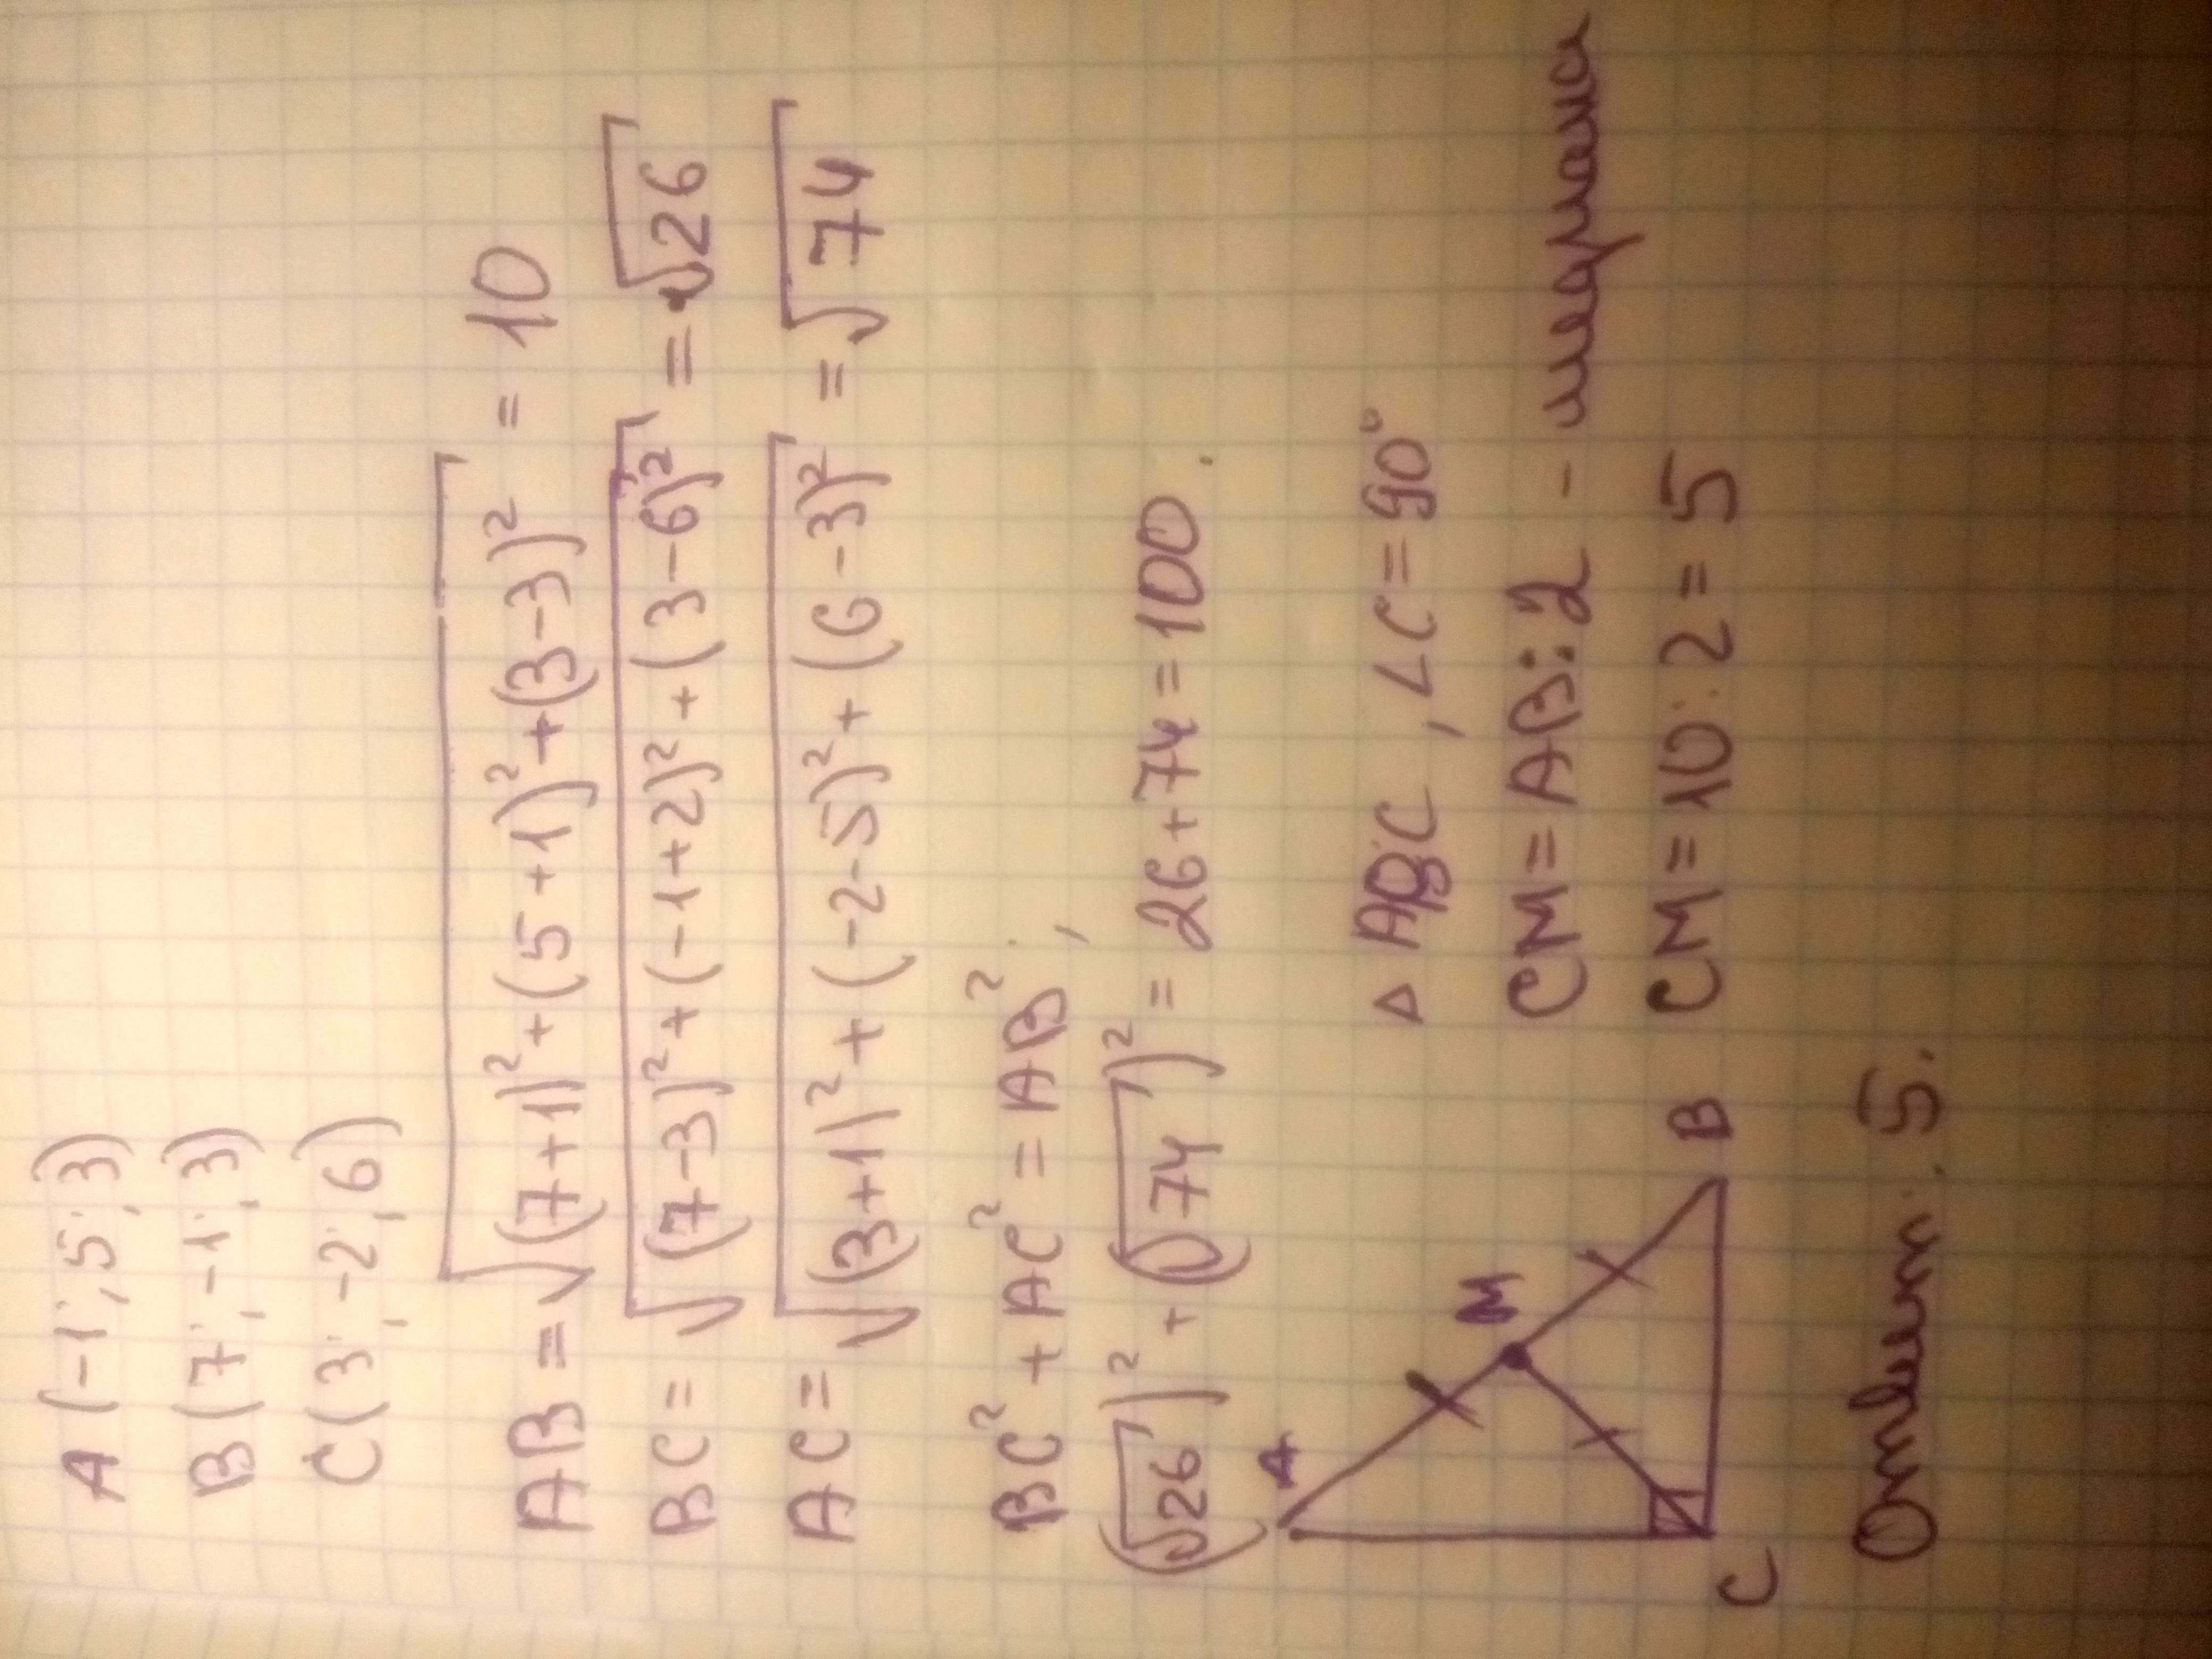 A (-1; 5; 3)
B (7; -1; 3)
C (3; -2; 6)
AB = √((7+1)² + (5+1)² + (3-3)²) = 10
BC = √((7-3)² + (-1+2)² + (3-6)²) = √26
AC = √((3+1)² + (-2-5)² + (6-3)²) = √74
BC² + AC² = AB²,
(√26)² + (√74)² = 26+74 = 100.
△ ABC, ∠C = 90°
CM = AB : 2 - медиана
CM = 10 : 2 = 5
A
M
B
C
Ответ: 5.